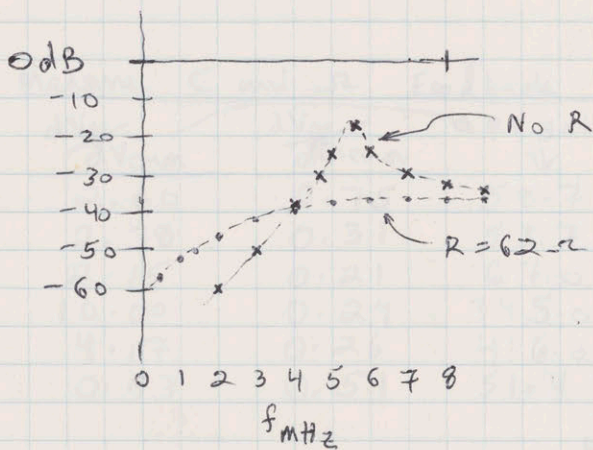 0 dB
-10
-20
-30
-40
-50
-60
No R
R = 62 Ω
0 1 2 3 4 5 6 7 8
f MHz